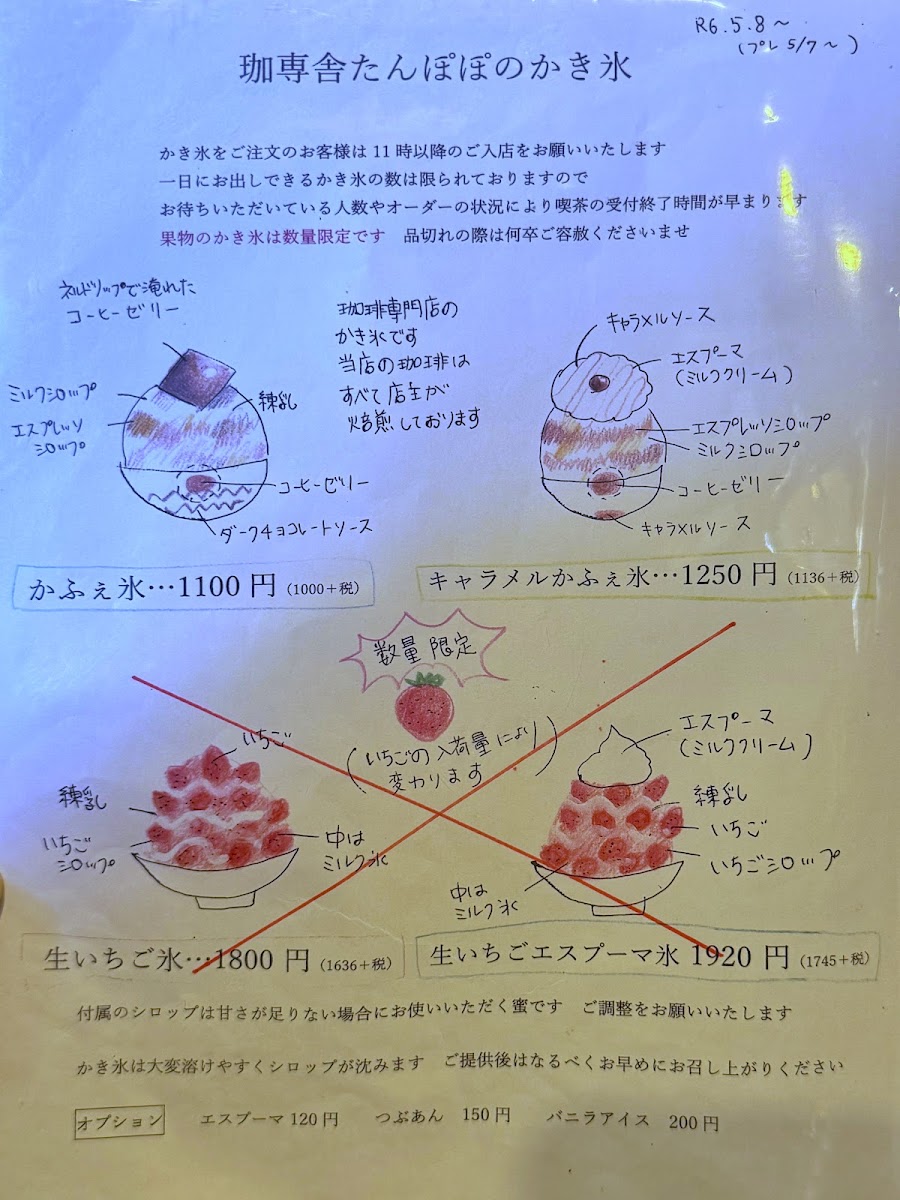 R6.5.8〜
(プレ5/7〜)
珈専舎たんぽぽのかき氷
かき氷をご注文のお客様は11時以降のご入店をお願いいたします
一日にお出しできるかき氷の数は限られておりますので
お待ちいただいている人数やオーダーの状況により喫茶の受付終了時間が早まります
果物のかき氷は数量限定です 品切れの際は何卒ご容赦くださいませ
ネルドリップで淹れた
コーヒーゼリー
ミルクシロップ
エスプレッソ
シロップ
練乳
コーヒーゼリー
ダークチョコレートソース
珈琲専門店の
かき氷です
当店の珈琲は
すべて店主が
焙煎しております
キャラメルソース
エスプーマ
(ミルククリーム)
エスプレッソシロップ
ミルクシロップ
コーヒーゼリー
キャラメルソース
かふぇ氷…1100円(1000+税)
キャラメルかふぇ氷…1250円(1136+税)
数量限定
(いちごの入荷量により
変わります)
いちご
練乳
いちご
シロップ
中は
ミルク氷
エスプーマ
(ミルククリーム)
練乳
いちご
いちごシロップ
中は
ミルク氷
生いちご氷…1800円(1636+税)
生いちごエスプーマ氷 1920円(1745+税)
付属のシロップは甘さが足りない場合にお使いいただく蜜です ご調整をお願いいたします
かき氷は大変溶けやすくシロップが沈みます ご提供後はなるべくお早めにお召し上がりください
オプション エスプーマ120円 つぶあん 150円 バニラアイス 200円